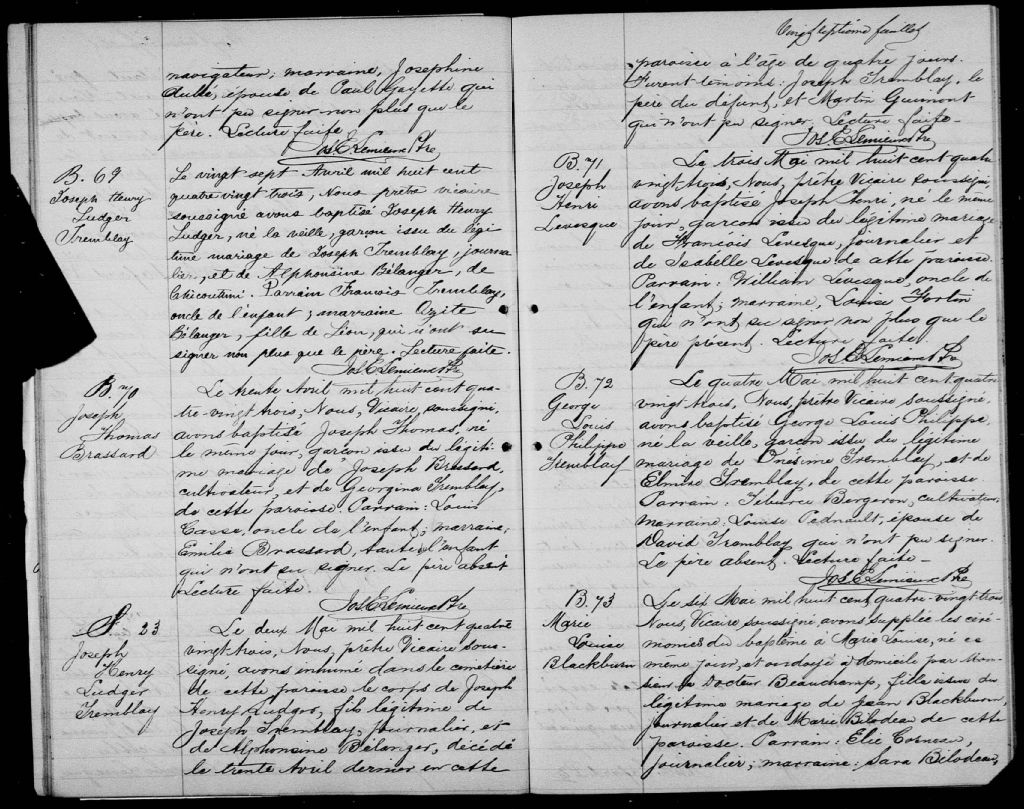 navigateur; marraine, Josephine
Dubé, épouse de Paul Gayette qui
n'ont pu signer non plus que le
père. Lecture faite
Jos E Lemieux Ptre
B. 69
Joseph Henry
Ludger
Tremblay
Le vingt sept Avril mil huit cent
quatre vingt trois, Nous prêtre vicaire
soussigné avons baptisé Joseph Henry
Ludger, né la veille, garçon issu du légi
time mariage de Joseph Tremblay, journa
lier, et de Alphonsine Bélanger, de
Chicoutimi. Parrain François Tremblay,
oncle de l'enfant; marraine Ozite
Bélanger, fille de Léon, qui n'ont su
signer non plus que le père. Lecture faite.
Jos E Lemieux Ptre
B. 70
Joseph
Thomas
Brassard
Le trente Avril mil huit cent qua
tre-vingt trois, Nous, Vicaire, soussigné,
avons baptisé Joseph Thomas, né
le même jour, garçon issu du légiti
me mariage de Joseph Brassard,
cultivateur, et de Georgina Tremblay,
de cette paroisse. Parrain: Louis
Gasse, oncle de l'enfant; marraine,
Emilie Brassard, tante de l'enfant
qui n'ont su signer. Le père absent
Lecture faite.
Jos E Lemieux Ptre
S. 23
Joseph
Henry
Ludger
Tremblay
Le deux Mai mil huit cent quatre
vingt-trois, Nous, prêtre Vicaire sous-
signé, avons inhumé dans le cimetière
de cette paroisse le corps de Joseph
Henry Ludger, fils légitime de
Joseph Tremblay, Journalier, et
de Alphonsine Bélanger, décédé
le trente Avril dernier en cette
Vingt septième feuillet
paroisse à l'âge de quatre jours.
Furent témoins: Joseph Tremblay, le
père du défunt, et Martin Guimont
qui n'ont pu signer. Lecture faite-
Jos E Lemieux Ptre
B. 71
Joseph
Henri
Levesque
Le trois Mai mil huit cent quatre
vingt-trois, Nous, prêtre Vicaire soussigné,
avons baptisé Joseph Henri, né le même
jour, garçon issu du légitime mariage
de François Levesque, journalier et
de Isabelle Levesque de cette paroisse.
Parrain: William Levesque, oncle de
l'enfant; marraine, Louise Fortin
qui n'ont su signer non plus que le
père présent. Lecture faite.
Jos E Lemieux Ptre
B. 72
George
Louis
Philippe
Tremblay
Le quatre Mai mil huit cent quatre
vingt-trois, Nous, prêtre Vicaire soussigné,
avons baptisé George Louis Philippe,
né la veille, garçon issu du légitime
mariage de Onésime Tremblay, et de
Elmire Tremblay, de cette paroisse.
Parrain: Bergeron, cultivateur,
marraine: Louise Pednault, épouse de
David Tremblay qui n'ont pu signer.
Le père absent. Lecture faite-
Jos E Lemieux Ptre
B. 73
Marie
Louise
Blackburn
Le six Mai mil huit cent quatre-vingt-trois
Nous, Vicaire soussigné avons suppléé les céré-
monies du baptême à Marie Louise, né ce
même jour, et ondoyé à domicile par Mon-
sieur le Docteur Beauchamp, fille issue du
légitime mariage de Jean Blackburn,
journalier et de Marie Bilodeau de cette
paroisse. Parrain: Elie Corneau,
Journalier; marraine: Sara Bilodeau,